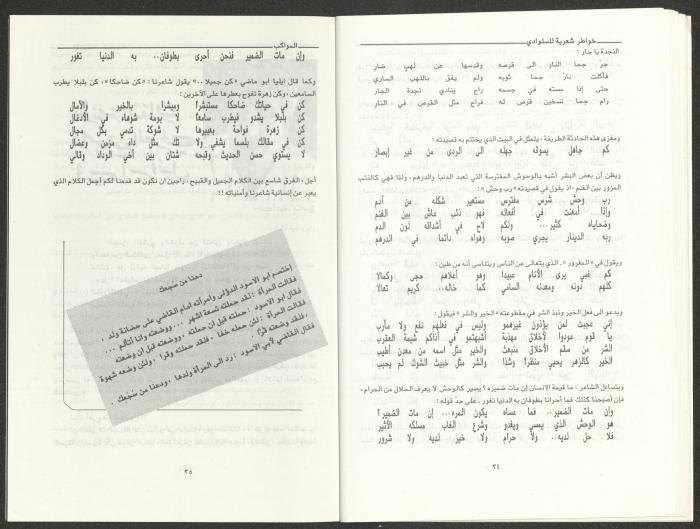 خواطر شعرية للسلوادي
النجدة يا جار :
جرّ جحا النار الى قرصه وقدسها عن لهب ضار
فأكلت نارُ جحا ثوبه ولم يفق باللهب الساري
حتى إذا مسته في جسمه راح ينادي نجدة الجار
رام جحا تسخين قرص له فراح مثل القرص في النار
ومغزى هذه الحادثة الطريفة ، يتمثل في البيت الذي يختتم به قصيدته :
كم جاهل يسوقه جهله الى الردى من غير إبصار
ويظن أن بعض البشر أشبه بالوحوش المفترسة التي تعبد الدنيا والدرهم ، ولذا فهي كالذئب
المزور بين الغنم ، اذ يقول في قصيدته «رب وحش» :
رب وحش شرس مفترس مستعير شكله من آدم
وإذا أمعنت في أفعاله فهو ذئب عاش بين الغنم
وضحاياه كثير... ولكم لاح في أشداقه لون الدم
ربه الدينار يجري صوبه وهواه دائما في الدرهم
ويقول في «المغرور» ، الذي يتعالى عن الناس ويتناسى أنه من طين :
كم غبي يرى الأنام عبيدا وهو أعلاهم حجى وكمالا
كلهم دونه ومعدنه السامي كما خاله.. كريم تعالا
ويدعو الى فعل الخير ونبذ الشر في مقطوعته «الخير والشر» فيقول :
إني عجبت لمن يؤذون غيرهمو وليس في فعلهم نفع ولا مأرب
يا قوم عودوا لأخلاق مهذبة أشبهتمو في أذاكم شيمة العقرب
الشر من سقم الأخلاق منبعث والخير مثل اسمه من معدن أطيب
الخير كالزهر يحيي منظراً وشذا والشر مثل خبيث الشوك لم يحبب
ويتساءل الشاعر : ما قيمة الإنسان إن مات ضميره؟ يصير كالوحش لا يعرف الحلال من الحرام ،
فإن أصبحنا كذلك فما أحرانا بطوفان به الدنيا تغور ، على حدّ قوله :
وإن مات الضمير.. فما عساه يكون المرء... إن مات الضمير؟
هو الوحش الذي يمسي ويغدو وشرع الغاب مسلكه الأثير
فلا حل لديه.. ولا حرام ولا خير لديه ولا شرور
٣٤
المواكب
وإن مات الضمير فنحن أحرى بطوفان.. به الدنيا تغور
وكما قال ايليا ابو ماضي «كن جميلا ..» يقول شاعرنا : «كن ضاحكا» ، كن بلبلا يطرب
السامعين ، وكن زهرة تفوح بعطرها على الآخرين :
كن في حياتك ضاحكا مستبشراً ومبشرا بالخير والآمال
كن بلبلا يشدو فيطرب سامعاً لا بومة شوهاء في الأدغال
كن زهرة فواحة بعبيرها لا شوكة تدمي بكل مجال
كن في مقالك بلسما يشفي ولا تك مثل داء مزمن وعضال
لا يستوي حسن الحديث وقبحه شتان بين أخي الوداد وقالي
أجل ، الفرق شاسع بين الكلام الجميل والقبيح ، راجين ان نكون قد قدمنا لكم أجمل الكلام الذي
يعبر عن إنسانية شاعرنا وأمنياته !!
دعنا من سَجَعك
إختصم ابو الاسود الدؤلي وامرأته امام القاضي على حضانة ولد ،
فقالت المرأة : لقد حملته تسعة اشهر ... ووضعته وأنا أتألم ...
فقال ابو الاسود : حملته قبل ان حملته ، ووضعته قبل ان وضعته
فقالت المرأة : لئن حمله خفا ، فلقد حملته وقرا ، ولئن وضعه شهوة
، فلقد وضعته قرّاً
فقال القاضي لأبي الاسود : رد الى المرأة ولدها ، ودعنا من سَجَعك .
٣٥